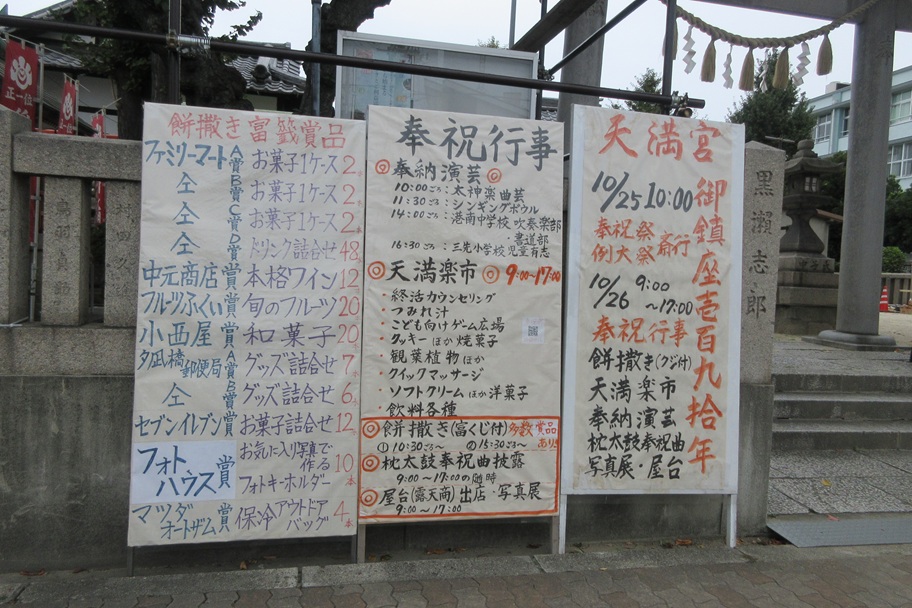 餅撒き富籤賞品
ファミリーマートA賞 お菓子1ケース 2本
仝 B賞 お菓子1ケース 2本
仝 C賞 お菓子1ケース 2本
仝 D賞 ドリンク詰合せ 48本
中元商店賞 本格ワイン 12本
フルーツふくい賞 旬のフルーツ 20本
小西屋賞 和菓子 20本
夕凪橋郵便局A賞 グッズ詰合せ 7本
仝 B賞 グッズ詰合せ 6本
セブンイレブン賞 お菓子詰合せ 12本
フォトハウス賞 お気に入り写真で作るフォトキーホルダー 10本
マツダオートザム賞 保冷アウトドアバッグ 4本
奉祝行事
◎奉納演芸◎
10:00ごろ:太神楽曲芸
11:30ごろ:シンギングボウル
14:00ごろ:港南中学校吹奏楽部
:書道部
16:30ごろ:三先小学校児童有志
◎天満楽市◎9:00-17:00
・終活カウンセリング
・つみれ汁
・こども向けゲーム広場
・クッキーほか焼菓子
・観葉植物ほか
・クイックマッサージ
・ソフトクリームほか洋菓子
・飲料各種
◎餅撒き(富くじ付)多数賞品あり
①10:30ごろ〜 ②15:30ごろ〜
◎枕太鼓奉祝曲披露
9:00〜17:00の随時
◎屋台(露天商)出店・写真展
9:00〜17:00
天満宮
御鎮座壱百九拾年
10/25 10:00
奉祝祭
例大祭斎行
10/26 9:00
〜17:00
奉祝行事
餅撒き(クジ付)
天満楽市
奉納演芸
枕太鼓奉祝曲
写真展・屋台
黒瀬志郎
正一位